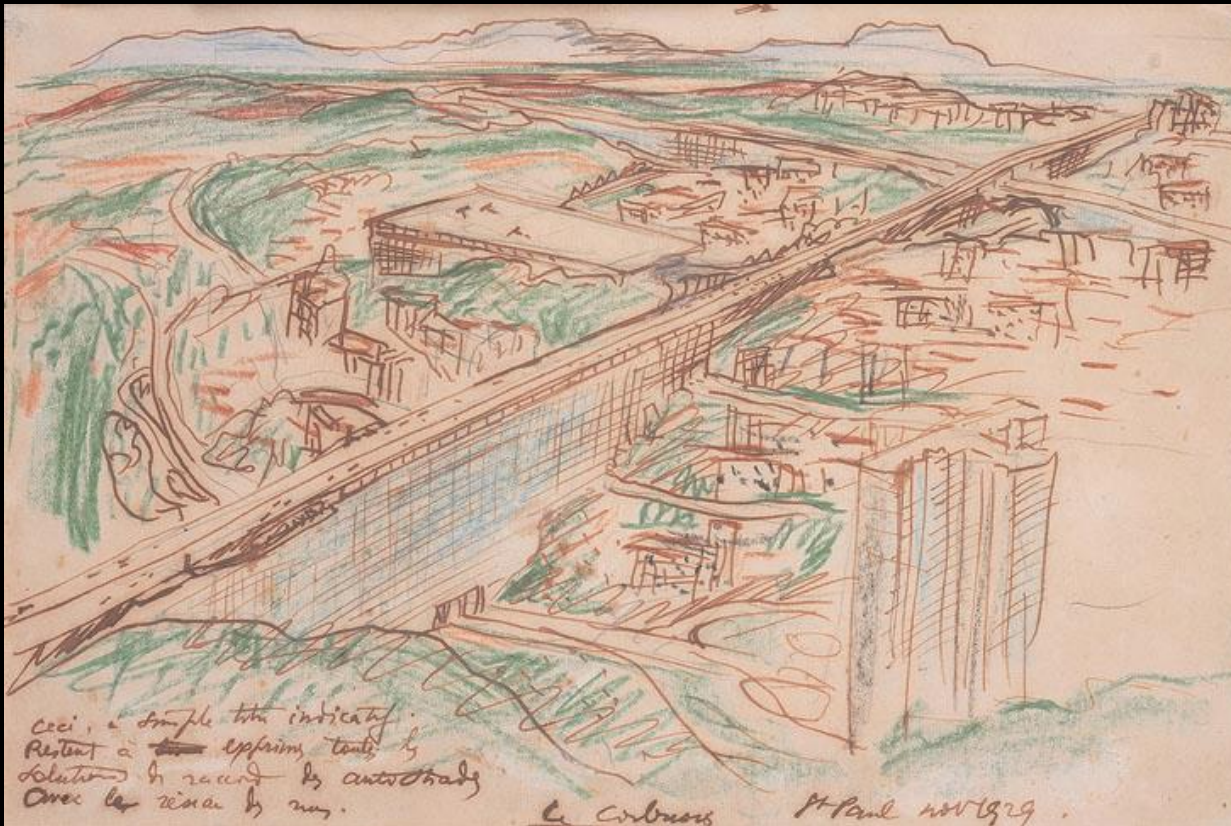 ceci, à simple titre indicatif.
Restent à exprimer toutes les
solutions de raccord des autostrades
avec le réseau des rues.
Le Corbusier St Paul nov 1929.